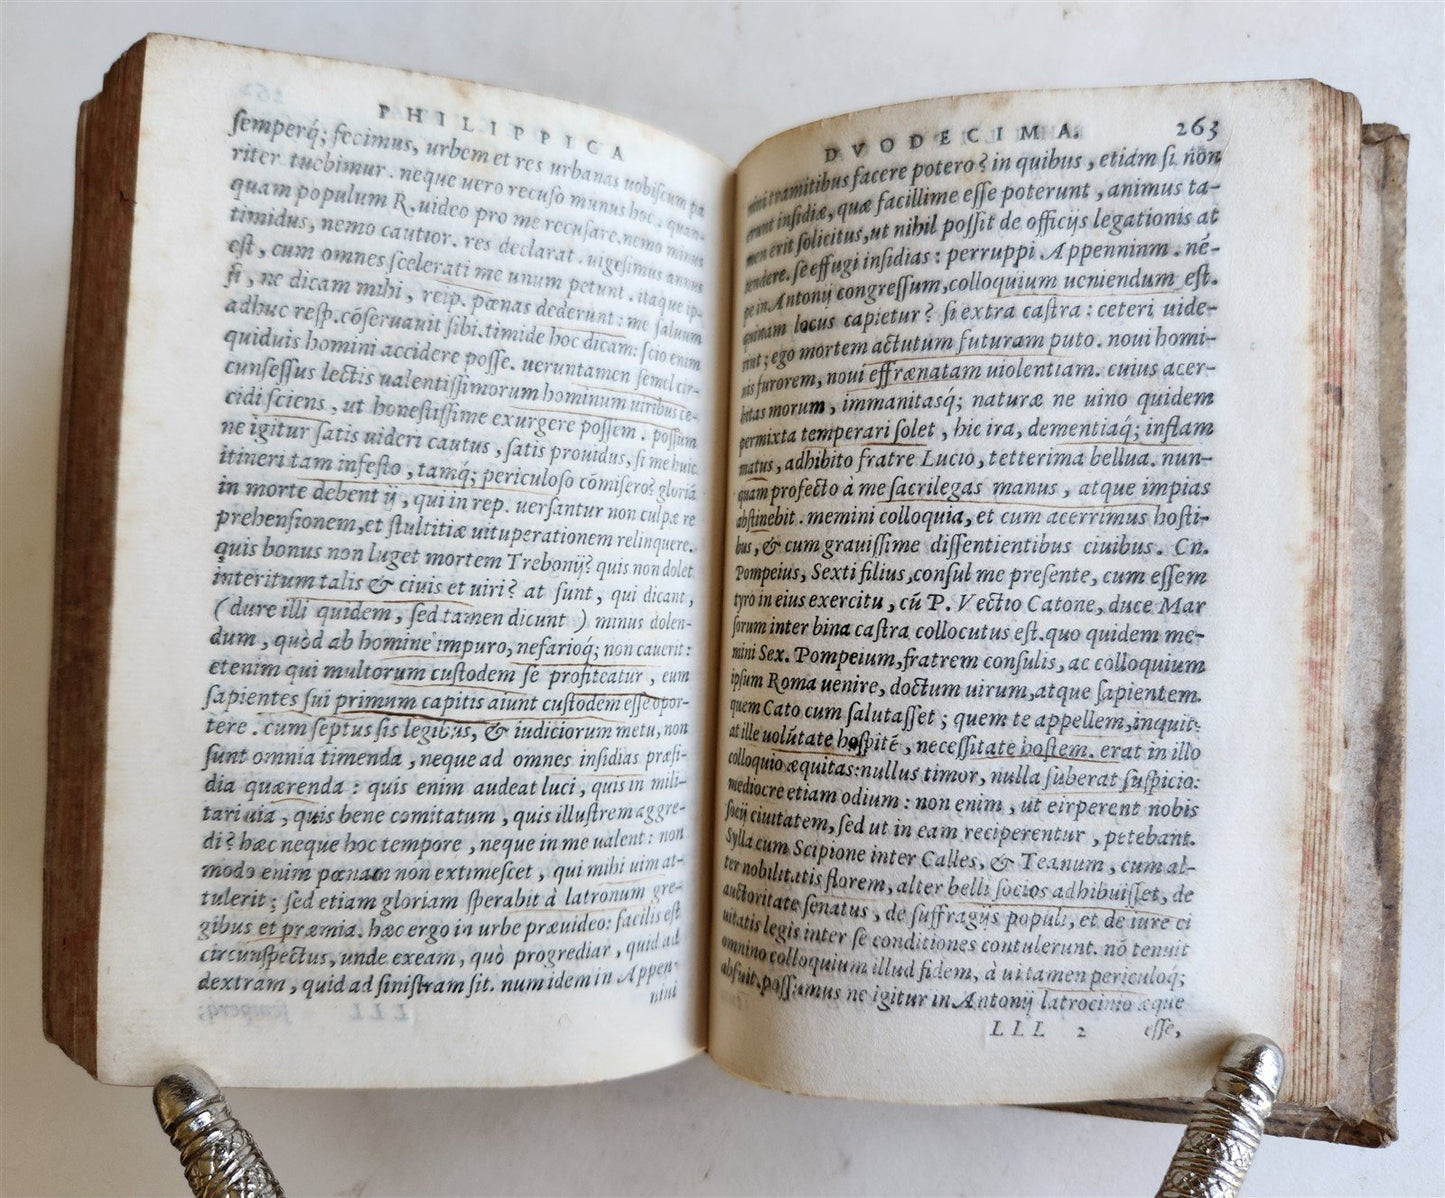 PHILIPPICA
ſemperq́; fecimus, urbem et res urbanas uobiſcum pa
riter tuebimur. neque uero recuſo munus hoc. quan-
quam populum R. uideo pro me recuſare. nemo minus
timidus, nemo cautior. res declarat. uigeſimus annus
eſt, cum omnes ſcelerati me unum petunt. itaque ip-
ſi, ne dicam mihi, reip. pœnas dederunt: me ſaluum
adhuc reſp. cōſeruauit ſibi. timide hoc dicam: ſcio enim
quiduis homini accidere poſſe. ueruntamen ſemel cir-
cunſeſſus lectis ualentiſſimorum hominum uiribus ce-
cidi ſciens, ut honeſtiſſime exurgere poſſem. poſſum
ne igitur ſatis uideri cautus, ſatis prouidus, ſi me huic
itineri tam infeſto, tamq́; periculoſo cōmiſero? gloriā
in morte debent ij, qui in rep. uerſantur non culpæ re
prehenſionem, et ſtultitiæ uituperationem relinquere.
quis bonus non luget mortem Trebonij? quis non dolet
interitum talis & ciuis et uiri? at ſunt, qui dicant,
(dure illi quidem, ſed tamen dicunt) minus dolen-
dum, quòd ab homine impuro, nefarioq́; non cauerit:
etenim qui multorum cuſtodem ſe profiteatur, eum
ſapientes ſui primum capitis aiunt cuſtodem eſſe opor-
tere. cum ſeptus ſis legibus, & iudiciorum metu, non
ſunt omnia timenda, neque ad omnes inſidias præſi-
dia quærenda: quis enim audeat luci, quis in mili-
tari uia, quis bene comitatum, quis illuſtrem aggre-
di? hæc neque hoc tempore, neque in me ualent: non
modo enim pœnam non extimeſcet, qui mihi uim at-
tulerit; ſed etiam gloriam ſperabit à latronum gre-
gibus et præmia. hæc ergo in urbe præuideo: facilis eſt
circunſpectus, unde exeam, quò progrediar, quid ad
dextram, quid ad ſiniſtram ſit. num idem in Appen-
nini
DVODECIMA. 263
nini tramitibus facere potero? in quibus, etiam ſi non
erunt inſidiæ, quæ facillime eſſe poterunt, animus ta-
men erit ſolicitus, ut nihil poſſit de officijs legationis at
tendere. ſe effugi inſidias: perruppi Appenninm. né-
pe in Antonij congreſſum, colloquium ueniendum eſt.
quinam locus capietur? ſi extra caſtra: ceteri uide-
rint; ego mortem actutum futuram puto. noui homi-
nis furorem, noui effrænatam uiolentiam. cuius acer-
bitas morum, immanitasq́; naturæ ne uino quidem
permixta temperari ſolet, hic ira, dementiaq́; inflam
matus, adhibito fratre Lucio, tetterima bellua. nun-
quam profecto à me ſacrilegas manus, atque impias
abſtinebit. memini colloquia, et cum acerrimus hoſti-
bus, & cum grauiſſime diſſentientibus ciuibus. Cn.
Pompeius, Sexti filius, conſul me preſente, cum eſſem
tyro in eius exercitu, cū P. Vectio Catone, duce Mar
ſorum inter bina caſtra collocutus eſt. quo quidem me-
mini Sex. Pompeium, fratrem conſulis, ac colloquium
ipſum Roma uenire, doctum uirum, atque ſapientem.
quem Cato cum ſalutaſſet; quem te appellem, inquit:
at ille uolūtate hoſpitē, neceſſitate hoſtem. erat in illo
colloquio æquitas: nullus timor, nulla ſuberat ſuſpicio:
mediocre etiam odium: non enim, ut eirperent nobis
ſocij ciuitatem, ſed ut in eam reciperentur, petebant.
Sylla cum Scipione inter Calles, & Teanum, cum al-
ter nobilitatis florem, alter belli ſocios adhibuiſſet, de
auctoritate ſenatus, de ſuffragijs populi, et de iure ci
uitatis legis inter ſe conditiones contulerunt. nō tenuit
omnino colloquium illud fidem, à ui tamen periculoq́;
abfuit. poſſumus ne igitur in Antonij latrocinio æque
LLL 2 eſſe,